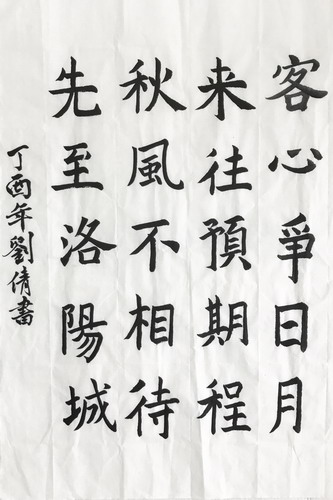 客心爭日月
来往預期程
秋風不相待
先至洛陽城
丁酉年劉倩書